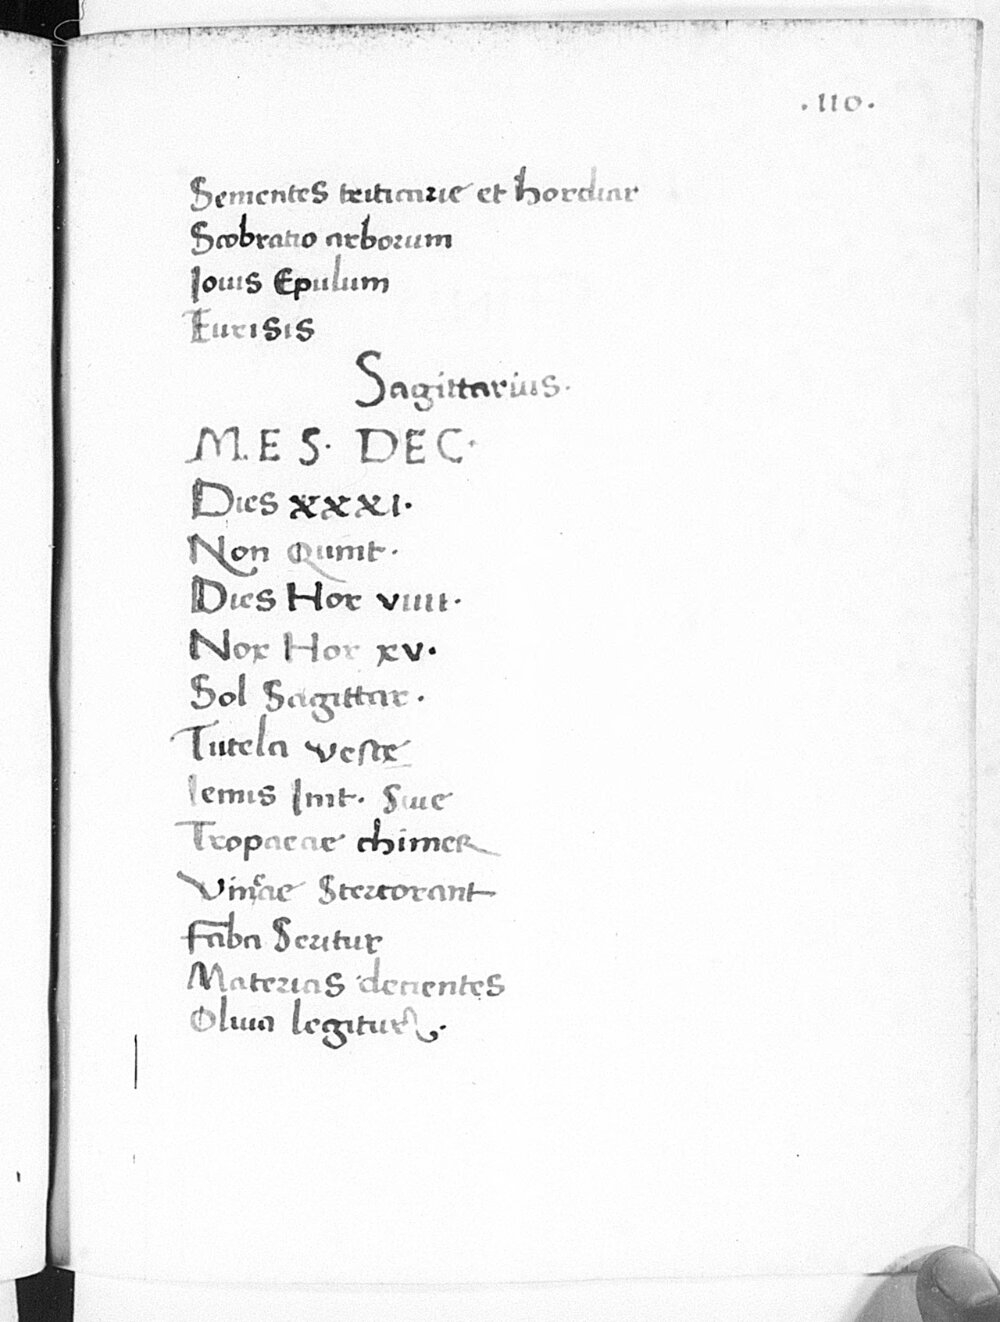 .110.
Sementes triticarie et hordiar
Scobratio arborum
Iouis Epulum
Eurisis
Sagittarius.
M.E S. DEC.
Dies xxxI.
Non Quint.
Dies Hor vıııı.
Nox Hor xv.
Sol Sagittar.
Tutela veste
Iemis Init. Siue
Tropaeae chimer
Vineae Stercorant
Faba Seritur
Materias deicientes
Oliua legitur.